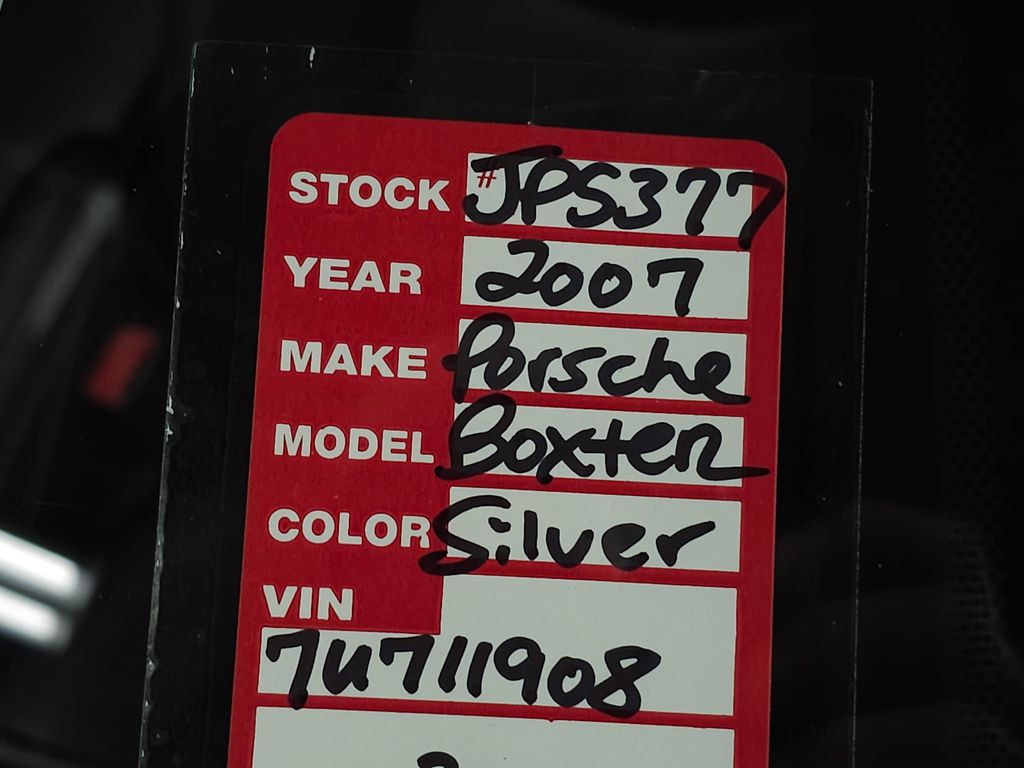 STOCK #JPS377
YEAR 2007
MAKE Porsche
MODEL Boxter
COLOR Silver
VIN
7U711908